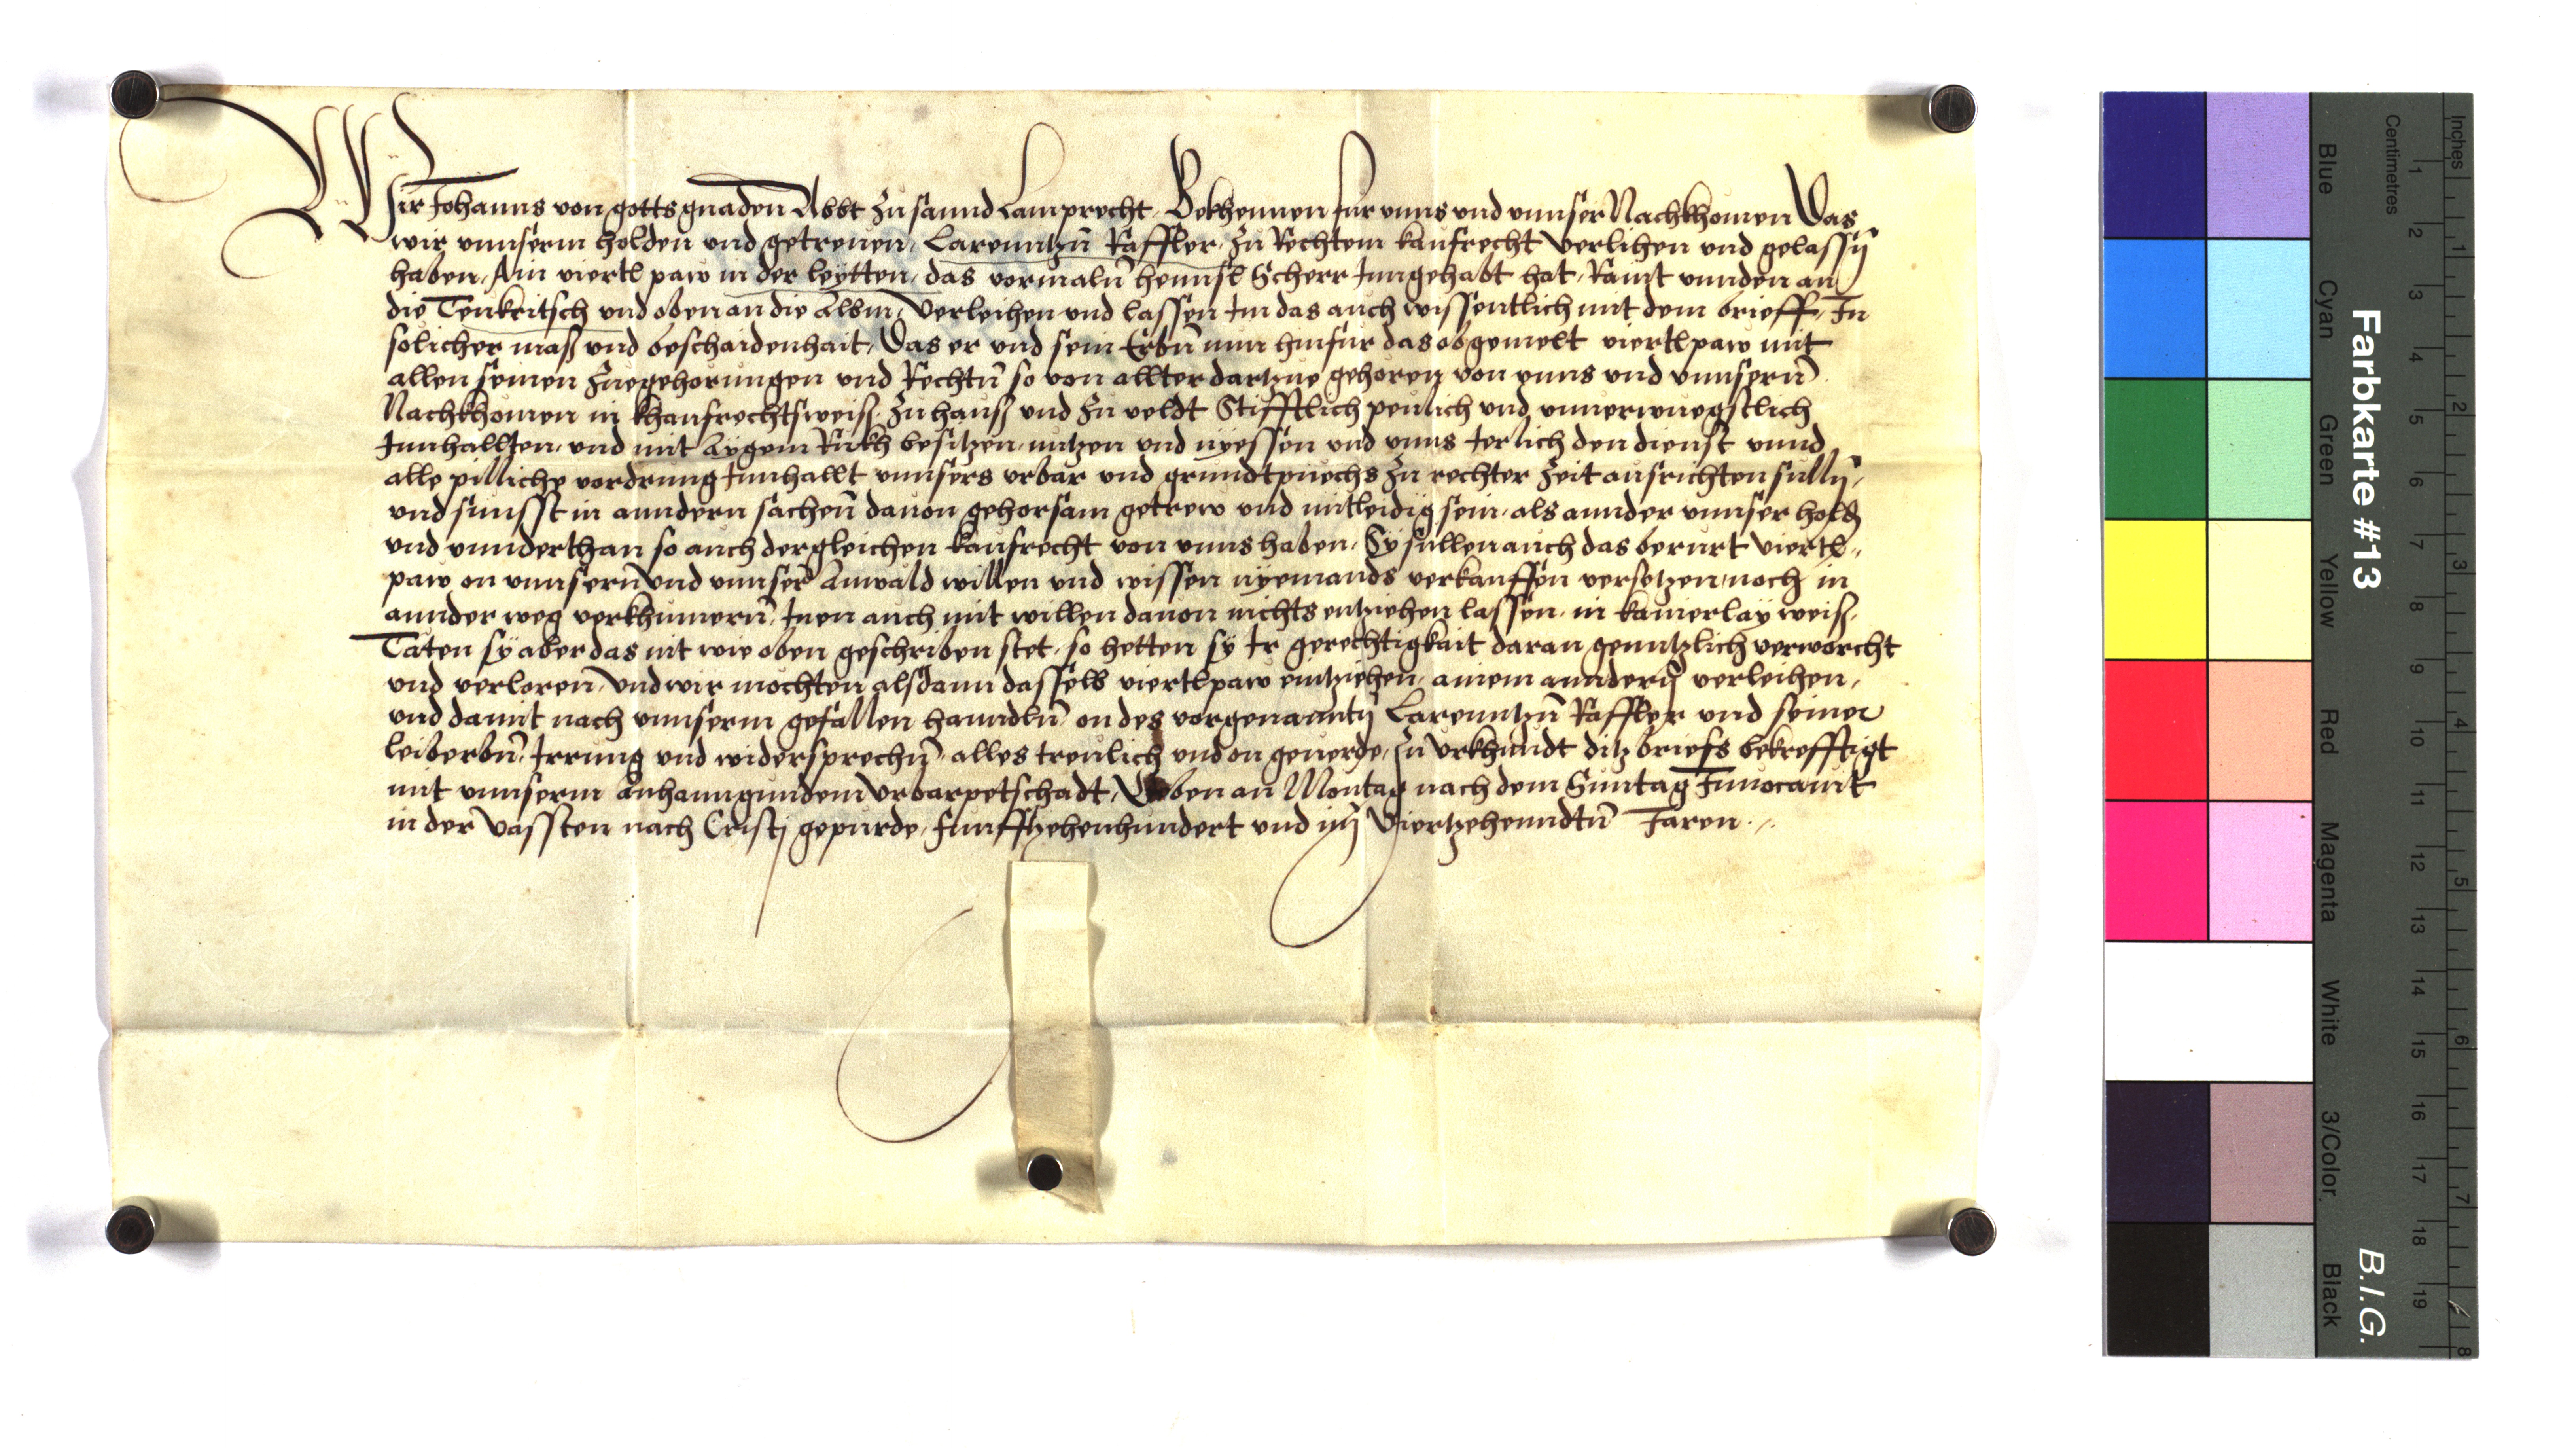 Wir Johanns von gotts gnaden Abbt zu sannd Lamprecht Bekhennen fur vnns vnd vnnser Nachkhomen Das
wir vnnserm holden vnd getrewen Larenntzn̄ Raffler zu Rechtem kaufrecht verlihen vnd gelassn̄
haben Ain viertl paw in der leÿtten das vormaln̄ hennsl Scherr Inngehabt hat Raint vnnden an
die vnd oben an die albm Verleihen vnd lassen Im das auch wissentlich mit dem brieff In
solicher mass vnd beschaidenhait Das er vnd sein Erbn̄ nun hinfur das obgemelt viertl paw mit
allen seinen zuegehorungen vnd Rechtn̄ so von allter dartzue gehoren von vnns vnd vnnsern̄
Nachkhomen in khaufrechtsweiss zu hauss vnd zu veldt Stifftlich peulich vnd vnuerwuegstlich
Innhallten vnd mit aÿgem Rukh besitzen nutzen vnd nÿessen vnd vnns Jerlich den dienst vnnd
alle pilliche vordrung Innhallt vnnsers vrbar vnd grundtpuechs zu rechter zeit ausrichten sulln̄
vnd sunsst in anndern sachen̄ dauon gehorsam getrew vnd mitleidig sein als annder vnnser hold
vnd vnnderthan so auch dergleichen kaufrecht von vnns haben Sy sullen auch das berurt viertl
paw on vnnsern̄ vnd vnnser Anwald willen vnd wissen nÿemands verkauffen versetzen noch in
annder weg verkhumern̄ Inen auch mit willen dauon nichts entziehen lassen in kainerlaÿ weiss
Täten sÿ aber das nit wie oben geschriben stet so hetten sÿ Ir gerechtigkait daran genntzlich verworcht
vnd verloren̄ vnd wir mochten alsdann dasselb viertl paw eintziehen ainem anndern̄ verleihen
vnd damit nach vnnserm gefallen hanndln̄ on des vorgenanntn̄ Larenntzn̄ Raffler vnd seiner
leiberbn̄ Irrung vnd widersprechn̄ alles treulich vnd on geuerde Zu Vrkhundt ditz briefs bekrefftigt
mit vnnserm anhanngundem Vrbarpetschadt Geben an Montag nach dem Suntag Inuocauit
in der Vassten nach Cristj gepurde funfftzehenhundert vnd im Viertzehenndtn̄ Jaren
Farbkarte #13
B.I.G.
Inches
Centimetres
Blue
Cyan
Green
Yellow
Red
Magenta
White
3/Color
Black
1 2 3 4 5 6 7 8 9 10 11 12 13 14 15 16 17 18 19
1 2 3 4 5 6 7 8